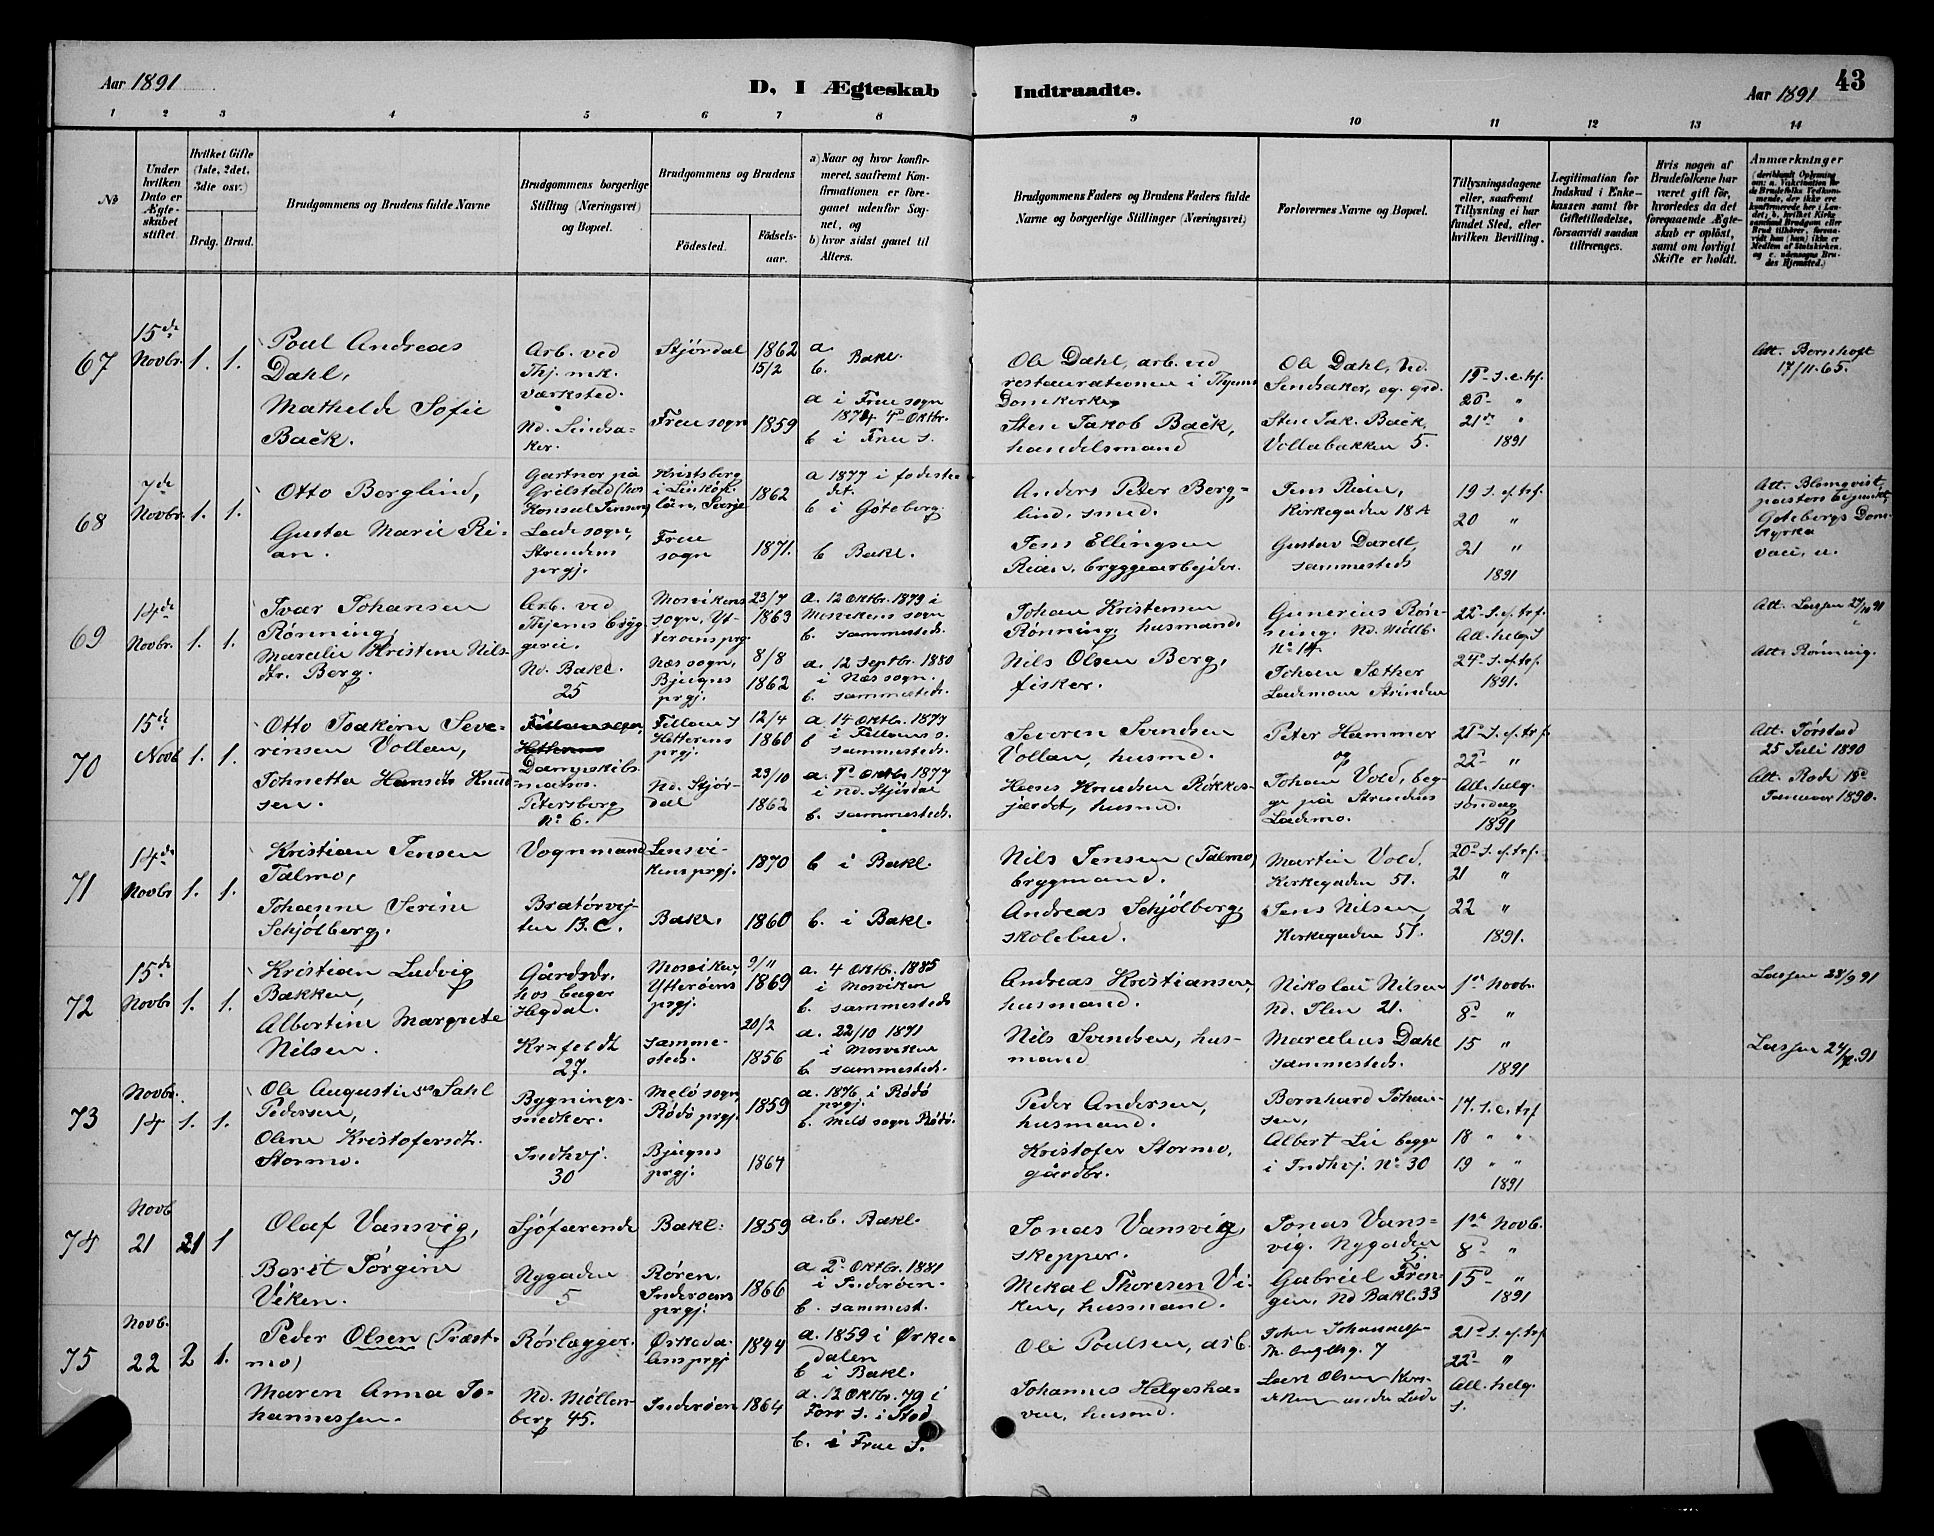 Aar 1891
D. I Ægteskab Indtraadte.
43
Aar 1891
1 2 3 4 5 6 7 8 9 10 11 12 13 14
№
Under hvilken Dato er Ægteskabet stiftet.
Hvilket Gifte (1ste, 2det, 3die osv.)
Brdg. Brud.
Brudgommens og Brudens fulde Navne
Brudgommens borgerlige Stilling (Næringsvei) og Bopæl.
Brudgommens og Brudens
Fødested.
Fødselsaar.
a) Naar og hvor konfirmeret, saafremt Konfirmationen er foregaaet udenfor Sognet, og
b) hvor sidst gaaet til Alters.
Brudgommens Faders og Brudens Faders fulde Navne og borgerlige Stillinger (Næringsvei)
Forlovernes Navne og Bopæl.
Tillysningsdagene eller, saafremt Tillysning ei har fundet Sted, efter hvilken Bevilling.
Legitimation for Indskud i Enkekassen samt for Giftetilladelse, forsaavidt saadan tiltrænges.
Hvis nogen af Brudefolkene har været gift før, hvorledes da det foregaaende Ægteskab er opløst, samt om lovligt Skifte er holdt.
Anmærkninger
67
15de Novbr.
1. 1.
Poul Andreas
Dahl,
Mathilde Sofie
Bačk.
Arb. ved
Thj. mk.
værksted.
Nd. Sindsa-
ker.
Stjørdal
Frue sogn
1862
15/2
1859
a.
b. Bakl.
a i Frue sogn
1874 4de Oktbr.
b i Frue s.
Ole Dahl, arb. ved
restaurationen i Thjems
Domkirke
Sten Jakob Bačk,
handelsmand
Ole Dahl, Nd.
Sindsaker, eg. grd.
Sten Jak. Bačk,
Vollabakken 5.
19de s. e. trf.
20de "
21de "
1891
Att. Bernhoft
17/11 65.
68
7de
Novbr.
1. 1.
Otto Berglind,
Gusta Marie Ri-
an.
Gartner på
Grilstad (hos
Konsul Jenssen)
Lade sogn,
Strindens
prgj.
Kristsberg
i Linköp.
län, Sverje
Frue
sogn
1862
1871.
a 1877 i fødeste-
det.
b i Göteborg.
b Bakl.
Anders Peter Berg-
lind, smed.
Jens Ellingsen
Rian, bryggearbejder.
Jens Rian,
Kirkegaden 18 A
Gustav Darell,
sammesteds
19 s. ef. trf.
20 "
21 "
1891
Att. Blomqvist,
Göteborgs Dom-
kyrka
69
14de
Novbr.
1. 1.
Ivar Johansen
Rønning,
Marelie Kristine Nils-
dtr. Berg.
Arb. ved
Thjems bryg-
geri.
Nd. Bakl.
25
Mosvikens
sogn, Yt-
terøens prg
Næs sogn,
Bjugns
prgj.
23/7
1863
8/8
1862
a. 12 Oktbr. 1879 i
Mosvikens sogn
b. sammesteds.
a. 12 Septbr. 1880
i Næs sogn.
b. sammesteds.
Johan Kristensen
Rønning, husmand.
Nils Olsen Berg,
fisker.
Gunerius Røn-
ning. Nd. Møllb.
No 14.
Johan Sæther
Lademoen Strinden
22de s. ef. trf.
All. helg. s
24de s. ef. trf.
1891.
Att. Lassen 27/10 91
Att. Rønning.
70
15de
Novb
1. 1.
Otto Joakim Seve-
rinsen Vollan,
Johnetta Hansdtr. Knud-
sen.
Dampskibs-
matros.
Petersborg
No 6.
Fillans S
Hitterens
prgj.
Nd. Stjør-
dal
12/4
1860
23/10
1862
a 14 Oktbr. 1877
i Fillans s.
b sammesteds.
a. 7de Oktbr 1877
i nd. Stjørdal
b. sammesteds.
Severin Svendsen
Vollan, husmd.
Hans Knudsen Røkkes-
jærdet, husmd.
Peter Hammer
og
Johan Vold, beg-
ge på Strindens
Lademo.
21de s. ef. trf.
22de "
All. helg.
søndag
1891
Att. Tørstad
25 Juli 1890
Att. Rode 18de
Januar 1890.
71
14de
Novbr
1. 1.
Kristian Jensen
Talmo,
Johanne Serine
Schjølberg.
Vognmand
Bratørvej-
ten 13. C.
Lensvi-
kens prgj.
Bakl.
1870
1860
b i Bakl.
b. i Bakl.
Nils Jensen (Talmo)
brygmand.
Andreas Schjølberg,
skolebud.
Martin Vold,
Kirkegaden 51.
Jens Nilsen,
Kirkegaden 51.
20de s. ef. trf.
21 "
22 "
1891.
72
15de
Novbr
1. 1.
Kristian Ludvig
Bakken,
Albertine Margrete
Nilsen.
Gårdsdr.
hos bager
Hegdal.
Kr=feldt
27.
Mosviken,
Ytterøens
prgj.
samme-
steds.
9/11
1869
20/2
1856
a. 4 Oktbr. 1885
i Mosviken
b. sammesteds.
a. 22/10 1871
i Mosviken
b. sammesteds.
Andreas Kristiansen,
husmand.
Nils Svendsen, hus-
mand
Nikolai Nilsen
Nd. Ilen 21.
Marcelius Dahl
sammesteds.
1ste Novbr.
8de "
15 "
1891
Lassen 28/9 91
Lassen 24/9.91
73
Novbr.
14
1. 1.
Ole Augustinus Sahl
Pedersen,
Oline Kristofersdt.
Stormo.
Bygnings-
snedker.
Indhvj.
30
Melø sogn
Rødø prgj.
Bjugns
prgj.
1859
1864
a. 1876 i Rødø
prgj.
b. Melø sogn Rødø.
Peder Andersen,
husmand.
Kristofer Stormo,
gårdbr.
Bernhard Johan-
sen,
Albert Lie begge
i Indhvj. No 30
17. s. e. trf
18 " "
19 " "
1891
74
Novb
21
21 1
Olaf Vansvig,
Berit Jørgine
Viken.
Sjøfarende
Nygaden
5
Bakl.
Røren.
Inderøens
prgj.
1859
1866
a. b. Bakl.
a 2de Oktbr. 1881
i Inderøen.
b. sammest.
Jonas Vansvig
skipper.
Mikal Thoresen Vi-
ken, husmand.
Jonas Vans-
vig. Nygaden
5.
Gabriel Fren-
gen, Nd Bakl. 33
1ste Novb.
8de "
15de "
1891
75
Novb.
22
2 1.
Peder Olsen (Præst-
mo)
Maren Anna Jo-
hannessen.
Rørlægger.
Nd. Møllen-
berg 45.
Ørkeda-
lens prgj
Inderøen
1844
1864
a. 1859 i Ørke-
dalen
b i Bakl.
a. 12 Oktbr. 79 i
Forr s. i Stod
b. i Frue S.
Ole Poulsen, arb.
Johannes Helgesha-
ven, husmd.
John Johannesse
Lars Olsen
21de s. ef. trf
22de "
All. helg.
s.